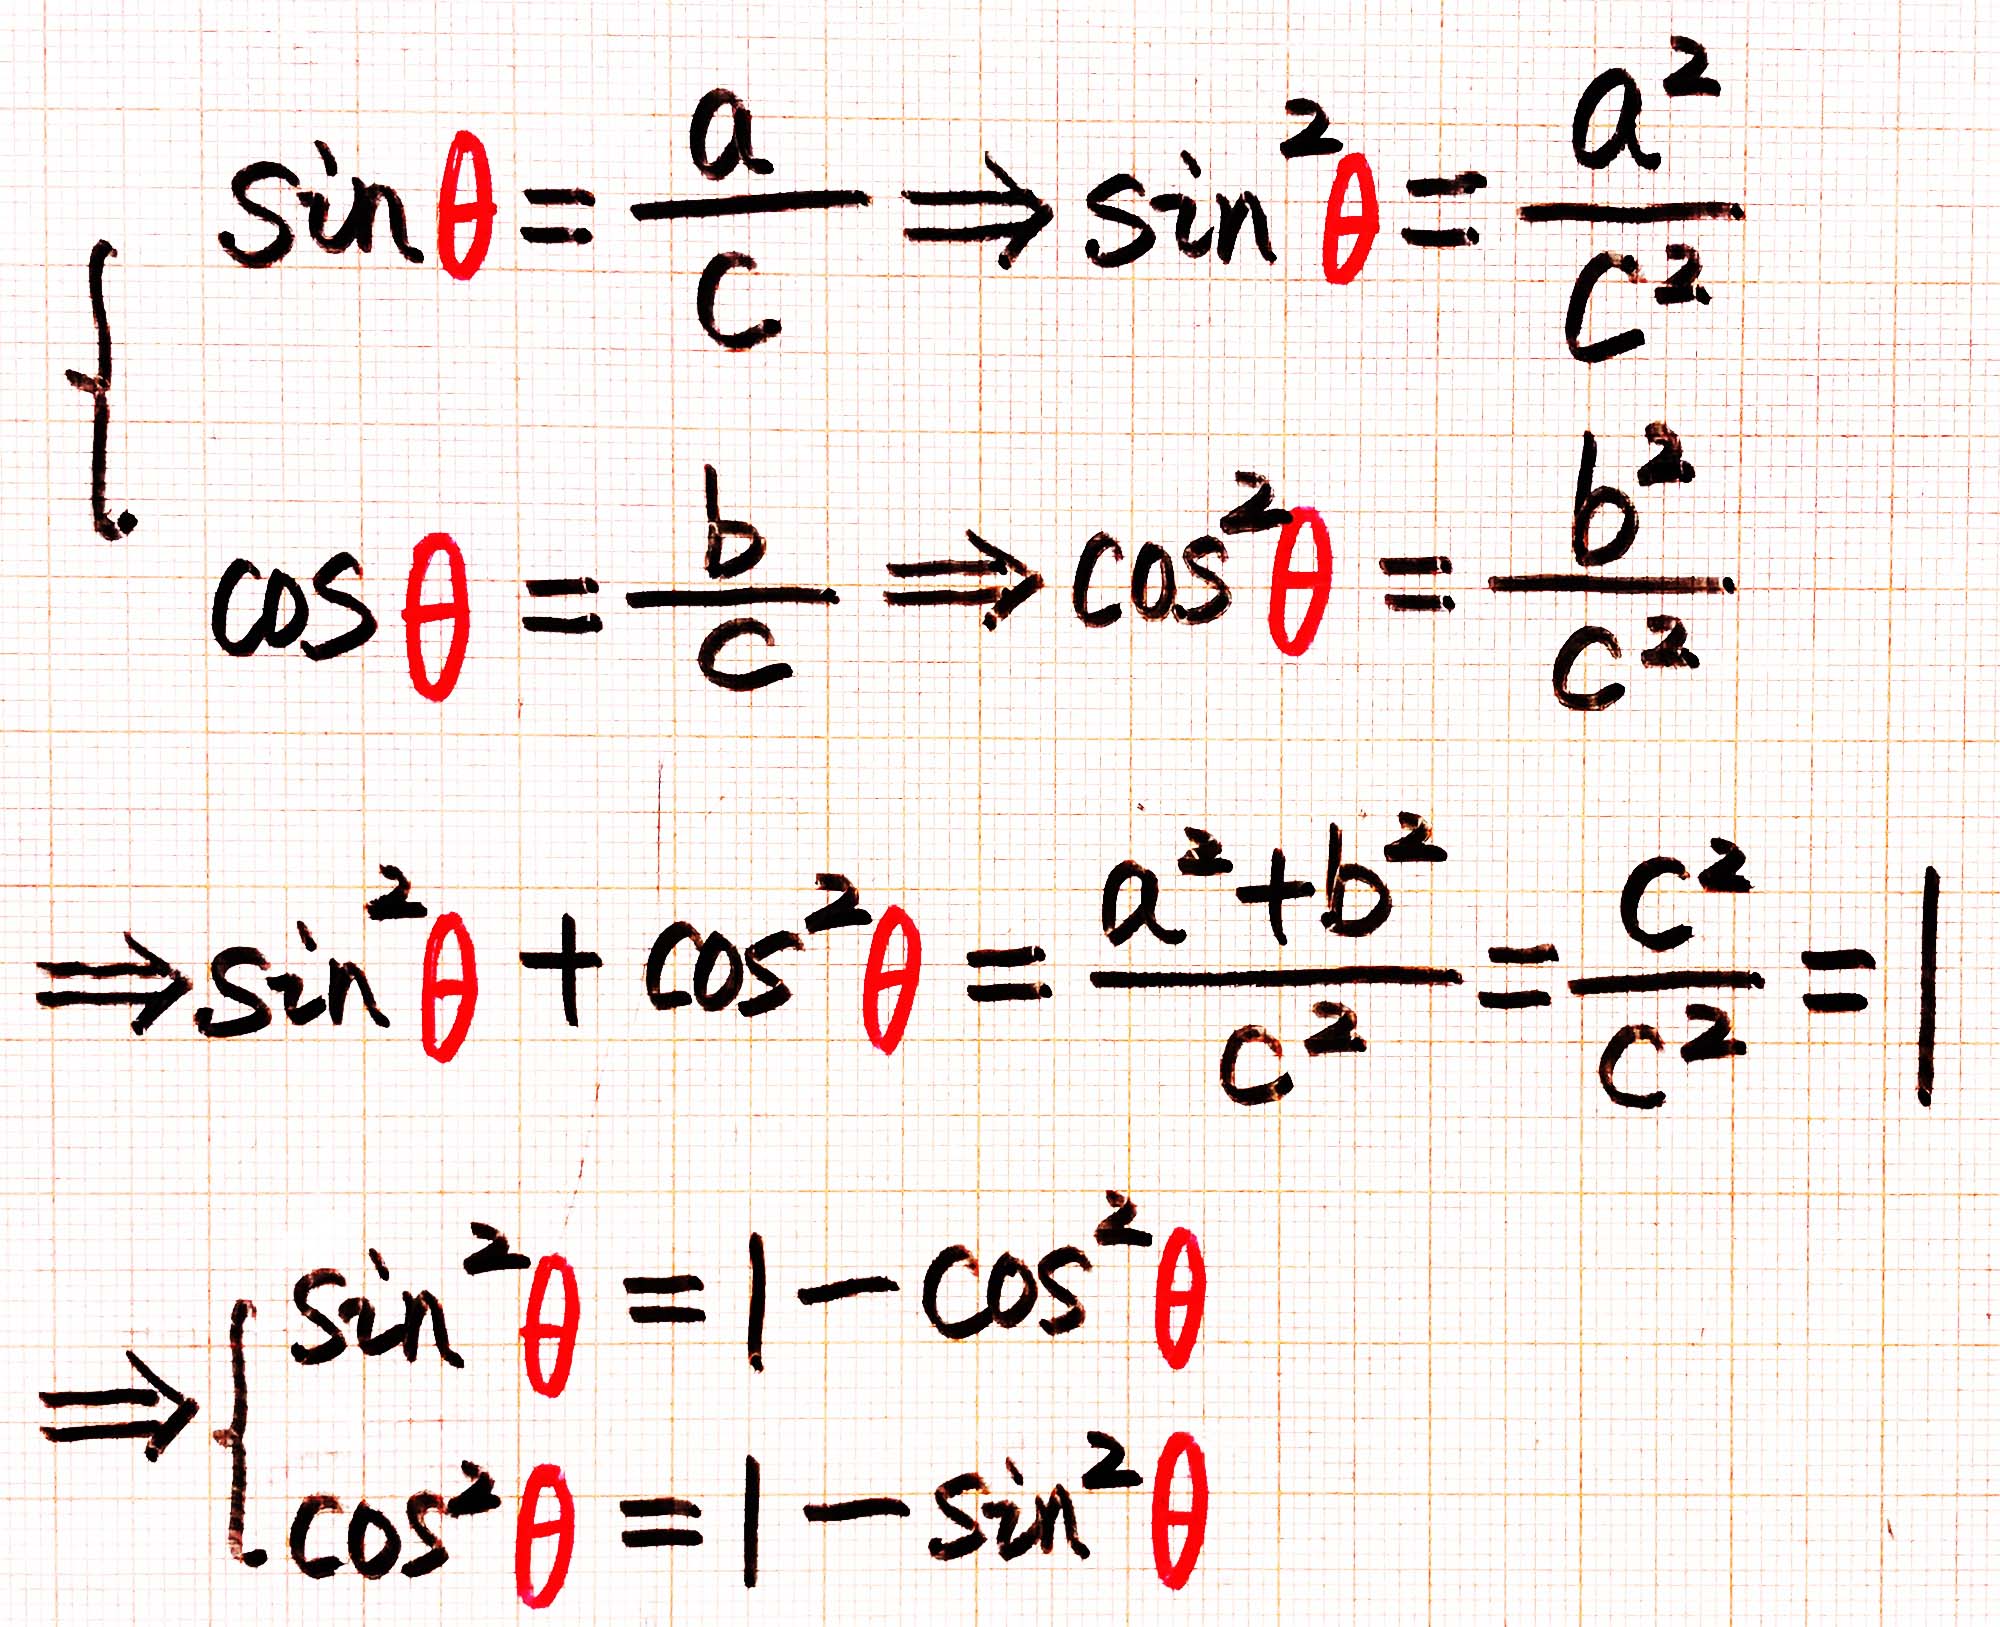 sinθ = a/c ⇒ sin²θ = a²/c²
cosθ = b/c ⇒ cos²θ = b²/c²
⇒ sin²θ + cos²θ = (a²+b²)/c² = c²/c² = 1
⇒ { sin²θ = 1 − cos²θ
cos²θ = 1 − sin²θ